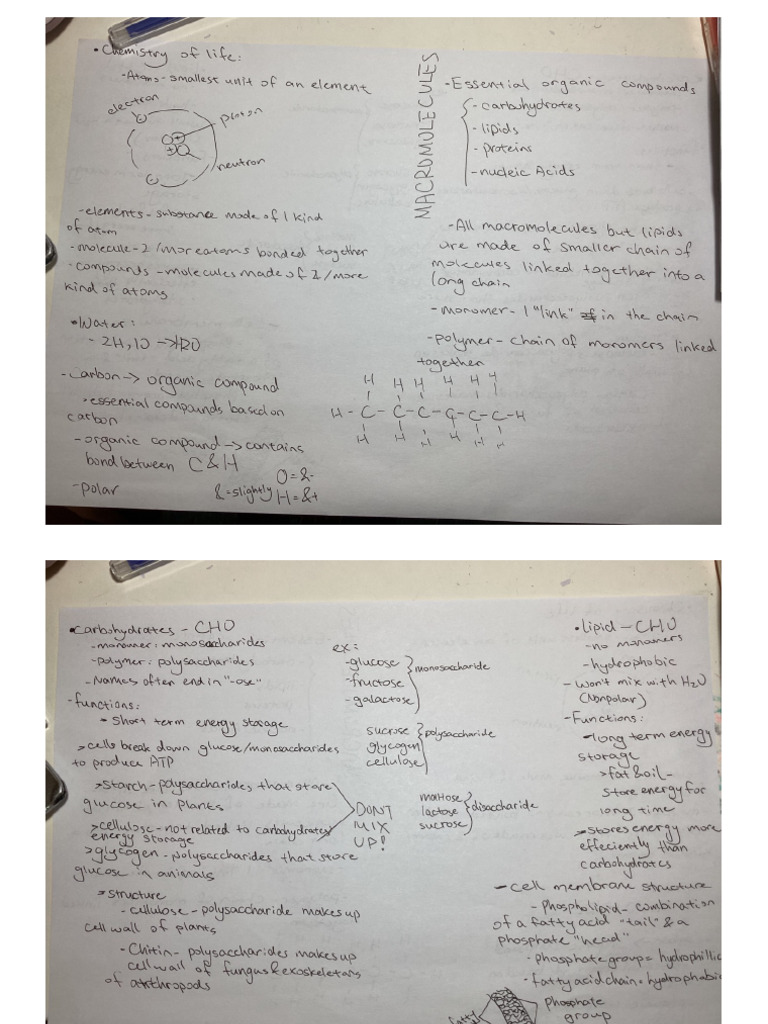 • Chemistry of life:
- Atoms - smallest unit of an element
electron
proton
neutron
- elements - substance made of 1 kind
of atom
- molecule - 2 / more atoms bonded together
- compounds - molecules made of 2 / more
kind of atoms
• Water:
- 2H, 1O → H2O
- Carbon → organic compound
• essential compounds based on
carbon
- organic compound → contains
bond between C & H
- polar
O = &-
& = slightly H = &+
MACROMOLECULES
- Essential organic compounds
- carbohydrates
- lipids
- proteins
- nucleic Acids
- All macromolecules but lipids
are made of smaller chain of
molecules linked together into a
long chain
- monomer - 1 "link" in the chain
- polymer - chain of monomers linked
together
H H H H H H
H - C - C - C - C - C - C - H
H H H H H H
• Carbohydrates - CHO
- monomer: monosaccharides
- polymer: polysaccharides
- Names often end in "-ose"
- functions:
- Short term energy storage
> cells break down glucose/monosaccharides
to produce ATP
> starch - polysaccharides that store
glucose in plants
> cellulose - not related to carbohydrates
energy storage
> glycogen - polysaccharides that store
glucose in animals
DON'T
MIX
UP!
> structure
- cellulose - polysaccharide makes up
cell wall of plants
- Chitin - polysaccharides makes up
cell wall of fungus & exoskeletons
of arthropods
ex:
- glucose
- fructose
- galactose
monosaccharide
sucrose
glycogen
cellulose
polysaccharide
maltose
lactose
sucrose
disaccharide
• Lipid - CHO
- no monomers
- hydrophobic
- won't mix with H2O
(Nonpolar)
- Functions:
- long term energy
storage
> fat & oil -
store energy for
long time
> stores energy more
effeciently than
carbohydrates
- cell membrane structure
- Phospholipid - combination
of a fatty acid "tail" & a
phosphate "head"
- phosphate group = hydrophillic
- fatty acid chain = hydrophobic
Phosphate
group
fatty